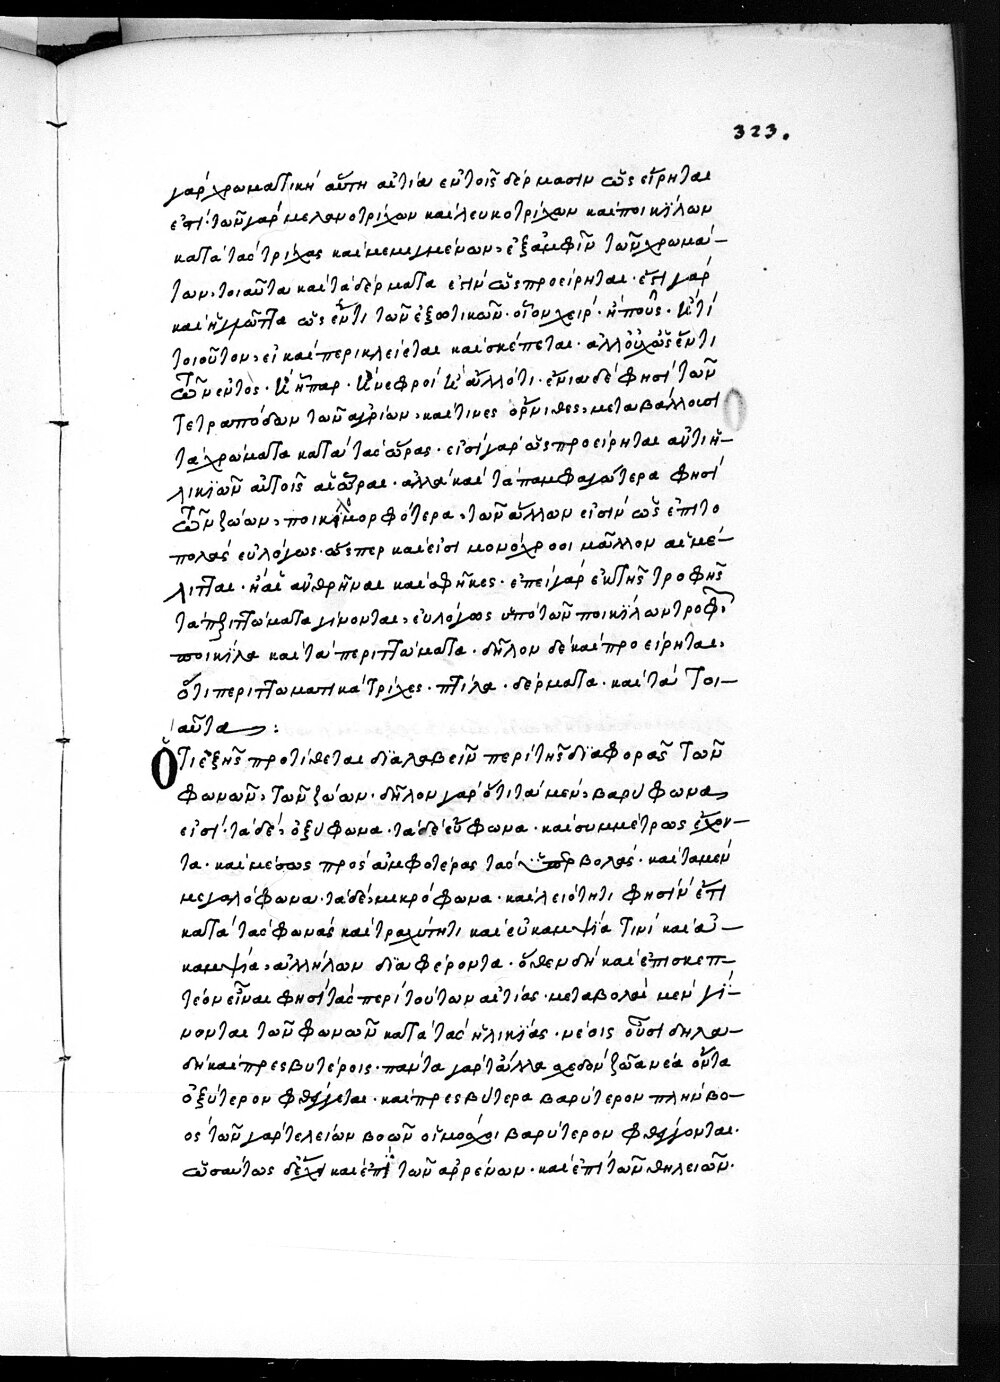 323.
γὰρ χρωματικὴ αὕτη αἰτία ἐν τοῖς δέρμασιν ὡς εἴρηται
ἐστί· τῶν γὰρ μελανοτρίχων καὶ λευκοτρίχων καὶ ποικίλων
κατὰ τὰς τρίχας καὶ μεμιγμένων, ἐξ ἀμφῖν τῶν χρωμά-
των, τοιαῦτα καὶ τὰ δέρματα ἐστὶν ὡς προείρηται· ἔστι γὰρ
καὶ ἡ γλῶττα ὡς ἕν τι τῶν ἐξωτικῶν· οἷον χεὶρ· ἢ ποὺς· ἤ τι
τοιοῦτον, εἰ καὶ περικλείεται καὶ σκέπεται· ἀλλ' οὐχ ὡς ἕν τι
τῶν ἐντὸς· ἢ ἧπαρ· ἢ νεφροὶ ἢ ἄλλό τι· ἔνια δέ φησι τῶν
τετραπόδων τῶν ἀγρίων, καί τινες ὄρνιθες, μεταβάλλουσι
τὰ χρώματα κατὰ τὰς ὥρας· εἰσὶ γὰρ ὡς προείρηται αὗται ἡ-
λικιῶν αὐτοῖς αἱ ὧραι· ἀλλὰ καὶ τὰ παμφαγώτερα φησὶ
τῶν ζώων, ποικιλομορφότερα, τῶν ἄλλων εἰσὶν ὡς ἐπὶ το
πολὺ εὐλόγως· ὥσπερ καὶ εἰσι μονόχροοι μᾶλλον αἱ μέ-
λιτται· ἢ αἱ ἀνθρῆναι καὶ σφῆκες· ἐπεὶ γὰρ ἐκ τῆς τροφῆς
τὰ περιττώματα γίνονται, εὐλόγως ὑπὸ τῶν ποικίλων τροφῶν,
ποικίλα καὶ τὰ περιττώματα· δῆλον δὲ καὶ προείρηται,
ὅτι περιττωματικὰ τρίχες· πτίλα· δέρματα· καὶ τὰ τοι-
αῦτα :
Ὅτι ἑξῆς προτίθεται διαλαβεῖν περὶ τῆς διαφορᾶς τῶν
φωνῶν, τῶν ζώων· δῆλον γὰρ ὅτι τὰ μὲν, βαρύφωνα
εἰσί· τὰ δὲ, ὀξύφωνα· τὰ δὲ εὔφωνα· καὶ συμμέτρως ἔχον-
τα· καὶ μέσως πρὸς ἀμφοτέρας τὰς ὑπερβολὰς· καὶ τὰ μὲν
μεγαλόφωνα· τὰ δὲ, μικρόφωνα· καὶ λειότητι φησὶν ἔτι
κατὰ τὰς φωνὰς καὶ τραχύτητι καὶ εὐκαμψία τινὶ καὶ ἀ-
καμψία, ἀλλήλων διαφέροντα· ὅθεν δὴ καὶ ἐπισκεπ-
τέον εἶναι φησὶ τὰς περὶ τούτων αἰτίας· μεταβολαὶ μὲν γί-
νονται τῶν φωνῶν κατὰ τὰς ἡλικίας· νέοις οὖσι δηλα-
δὴ καὶ πρεσβυτέροις· πάντα γὰρ τἄλλα σχεδὸν ζῶα νέα ὄντα
ὀξύτερον φθέγγεται· καὶ πρεσβύτερα βαρύτερον πλὴν βο-
ὸς τῶν γὰρ τελείων βοῶν οἱ μόσχοι βαρύτερον φθέγγονται·
ὡσαύτως δὲ ἔχει καὶ ἐπὶ τῶν ἀρρένων· καὶ ἐπὶ τῶν θηλειῶν·